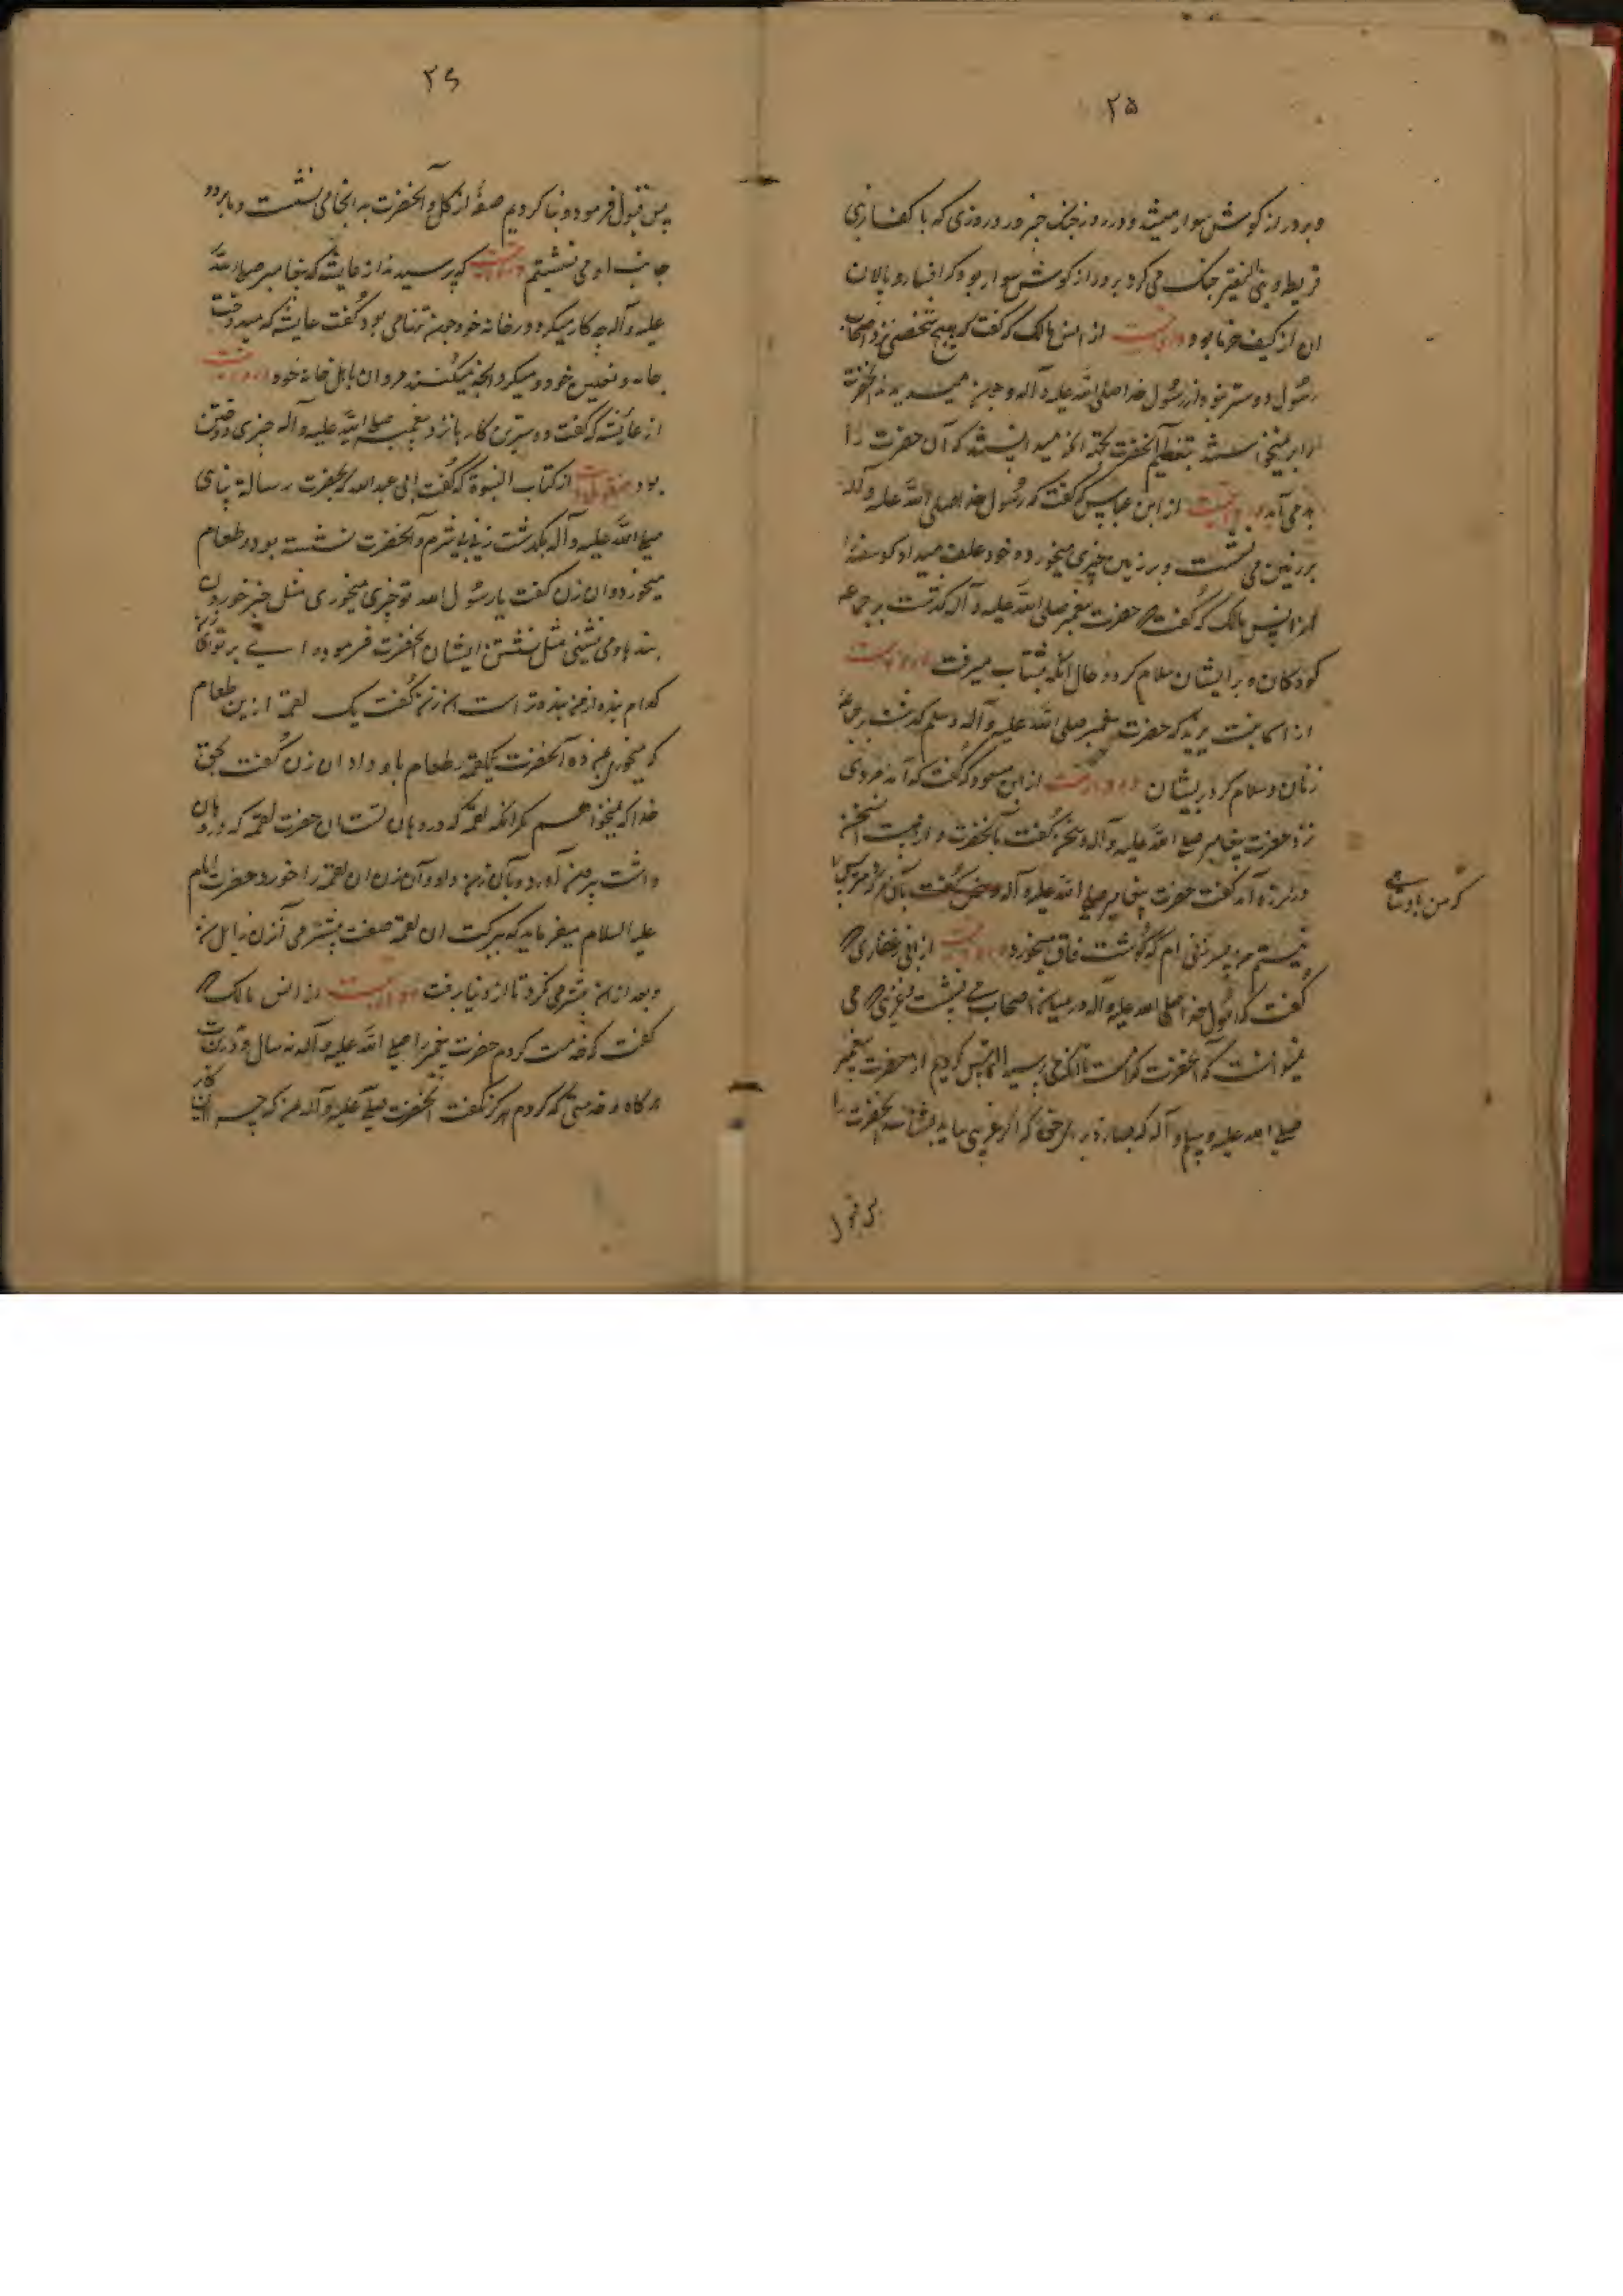 ۲۵
و بر دراز کوش سوار میشد و در روز جنک خیبر و در روزی که با کفار بنی
قریظه و بنی النضیر جنک می کرد بر دراز کوش سوار بود که افسار و پالان
ان از لیف خرما بود از انس مالک که گفت که هیچ شخصی نزد اصحاب
رسول دوستر نبود از رسول خدا صلی الله علیه و آله و چون میدیدند آنحضرت
را بر نمیخواستند بتعظیم آنحضرت بجهة انکه میدانستند که آن حضرت را
بد می آید از ابن عباس که گفت که رسول خدا صلی الله علیه و آله
بر زمین می نشست و بر زمین چیزی میخورد و خود علف میداد کوسفند
از انس مالک که گفت حضرت پیغمبر صلی الله علیه و آله گذشت بر جماعه
کودکان و بر ایشان سلام کرد و حال انکه بشتاب میرفت
از اسما بنت یزید که حضرت پیغمبر صلی الله علیه و آله وسلم گذشت بر جماعه
زنان و سلام کرد بر ایشان از ابن مسعود که گفت که آمد مردی
نزد حضرت پیغامبر صلی الله علیه و آله و سخن گفت بآنحضرت و از هیبت آنسخن
در لرزه آمد گفت حضرت پیغامبر صلی الله علیه و آله بآن مرد که مترس
که من پادشاهی
نیستم من پسر زنی ام که گوشت قاق میخورد از ابی ذر غفاری
گفت که رسول خدا صلی الله علیه و آله در میان اصحاب می نشست و غریبی که می
نمیدانست که آنحضرت کدامست تا انکه می پرسید التماس کردیم از حضرت پیغمبر
صلی الله علیه وسلم و آله که بسازند که اگر غریبی بیاید بشناسد آنحضرت را
پس قبول
۲۶
پس قبول فرمود و بنا کردیم صفهٔ از گل و آنحضرت به انجا می نشست و ما بر دو
جانب او می نشستیم که پرسیدند از عایشه که پیغامبر صلی الله
علیه و آله چه کار میکرد در خانه خود چون تنها می بود گفت عایشه که میدوخت
جامه و نعلین خود و میکرد انچه میکنند مردان باهل خانه خود
از عایشه که گفت دوسترین کار ها نزد پیغمبر صلی الله علیه و آله چیزی دوختن
بود از کتاب النبوة که گفت ابی عبد الله که بحضرت رسالة پناهی
صلی الله علیه و آله بگذشت زنی بی شرم و آنحضرت نشسته بود و طعام
میخورد و ان زن گفت یا رسول الله تو چیزی میخوری مثل چیز خوردن
بندها و می نشینی مثل نشستن ایشان آنحضرت فرمود وای بر تو
کدام بنده از من بنده تر است ان زن گفت یک لقمه ازین طعام
که میخوری بمن ده آنحضرت یکلقمه طعام باو داد ان زن گفت بحق
خدا که نمیخواهم مگر انکه لقمه که در دهان تست ان حضرت لقمه که در دهان
داشت بیرون آورد و بآن زن داد و آن زن ان لقمه را خورد حضرت امام
علیه السلام میفرماید که ببرکت ان لقمه صفت بیشرمی آنزن زایل
و بعد از ان بیشرمی نکرد تا از دنیا برفت از انس مالک
گفت که خدمت کردم حضرت پیغمبر را صلی الله علیه و آله نه سال و درین
هر کاه و خدمتی که کردم هرگز نگفت آنحضرت صلی الله علیه و آله من که چرا این کار